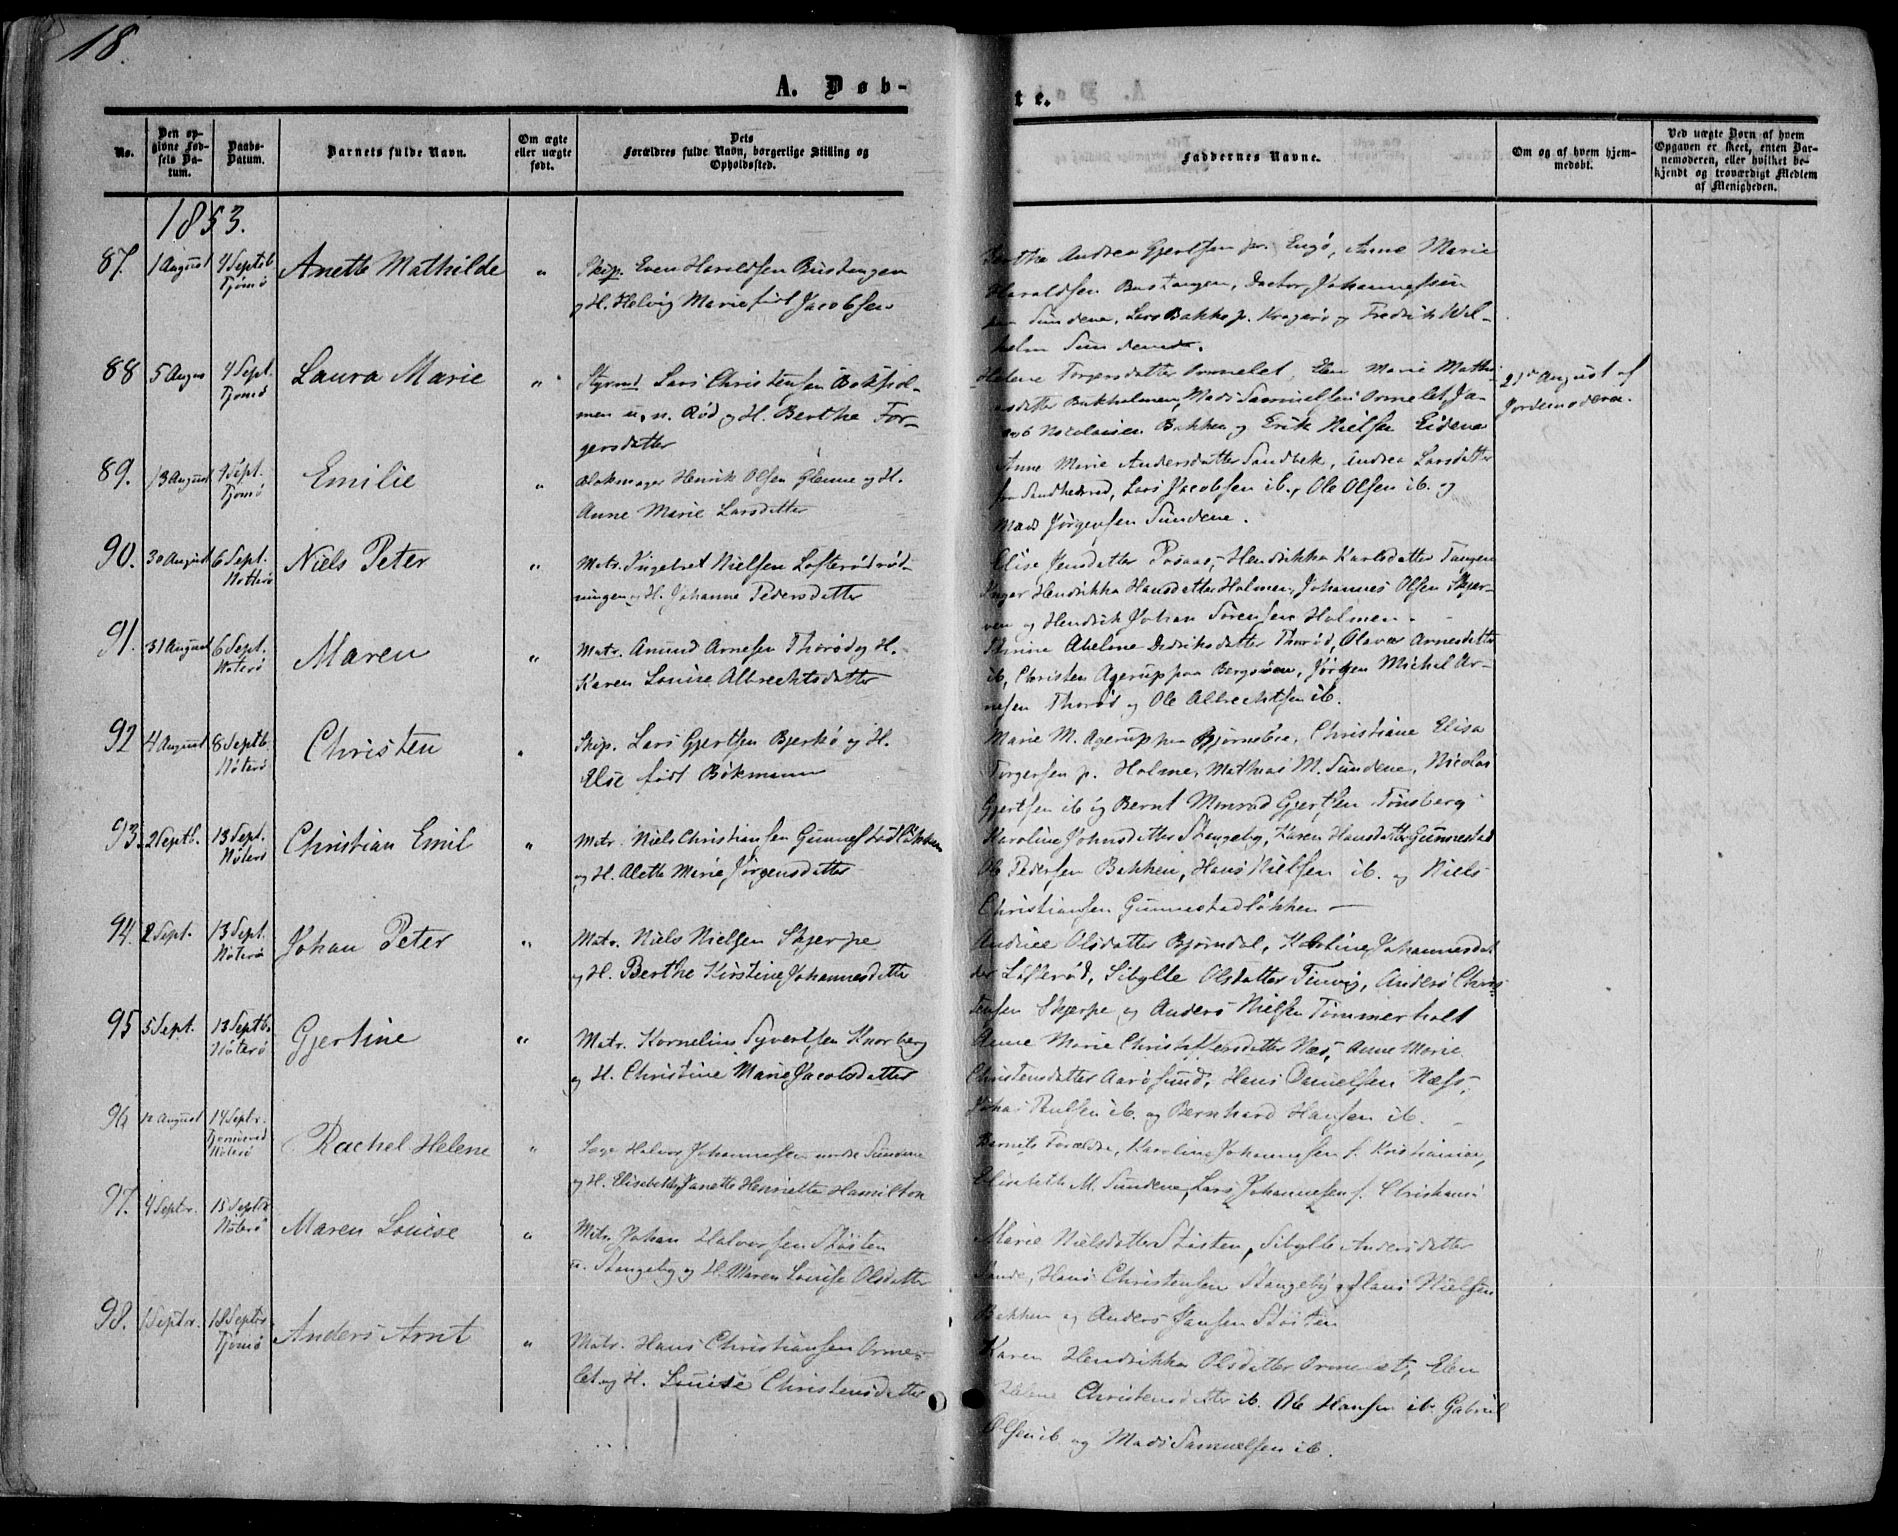 18.
A. Døb-
te.
No.
Den op-
givne Fød-
sels Da-
tum.
Daabs-
Datum.
Barnets fulde Navn.
Om ægte
eller uægte
født.
Dets
Forældres fulde Navn, borgerlige Stilling og
Opholdssted.
Faddernes Navne.
Om og af hvem hjem-
medøbt.
Ved uægte Børn af hvem
Opgaven er skeet, enten Bar-
nemoderen, eller hvilket be-
kjendt og troværdigt Medlem
af Menigheden.
1853.
87. 1 August 4 Septb. Tjømø Anette Mathilde " Skip. Even Haraldsen Bustangen
og H. Helvig Marie født Jacobsen
Andrea Gjertsen Engø, Anne Marie
Haraldsen Bustangen, Johannessen
Sundene, Lars Bakke p. Kragerø og Fredrik Wil-
helm Sundene.
88 5 August 4 Sept. Tjømø Laura Marie " Styrmd. Lars Christensen Bøkhol-
men u. n. Rød og H. Berthe Tor-
gersdatter
Helene Torgersdatter Ormelet, Elen Marie Mathi-
asdatter Bukholmen, Mads Samuelsen Ormelet, Ja-
cob Nicolaisen Bakken og Erik Nielsen Eidene
21de August af
Jordemoderen.
89. 13 August 4 Sept. Tjømø Emilie " Blokmager Henrik Olsen Glenne og H.
Anne Marie Larsdatter
Anne Marie Andersdatter Sandbek, Andrea Larsdatter
Lars Jacobsen ib., Ole Olsen ib. og
Mads Jørgensen Sundene.
90. 30 August 6 Sept. Nøtterø Niels Peter " Matr. Ingebret Nielsen Lofterødrød-
ningen og H. Johanne Pedersdatter
Elise Jensdatter Hendrikke Karlsdatter Tangen
Inger Hendrikke Hansdatter Holmen, Johannes Olsen Skjer-
ven og Hendrik Johan Sørensen Holmen.
91. 31 August 6 Sept. Nøterø Maren " Matr. Anund Arnesen Thorød og H.
Karen Louise Albrechtsdatter
Abelone Dedriksdatter Thorød, Olava Arnesdatter
ib, Christen Agerup paa Bergsøen, Jørgen Michel Ar-
nesen Thorød og Ole Albrechtsen ib.
92 4 August 8 Septb. Nøterø Christen " Skip. Lars Gjertsen Bjerkø og H.
Else født Bøkmann
Marie M. Agerup paa Bjørnebo, Christiane Elisa
Torgersen p. Holme, Mathias M. Sundene, Nicolai
Gjertsen ib og Bernt Monrad Gjertsen Tønsberg
93 2 Septb. 13 Sept. Nøterø Christian Emil " Matr. Niels Christiansen Gunnestadløkken
og H. Alette Marie Jørgensdatter
Karoline Johnsdatter Stangeby, Karen Hansdatter Gunnestad
Ole Pedersen Bakken, Hans Nielsen ib. og Niels
Christiansen Gunnestadløkken —
94. 2 Sept. 13 Sept. Nøterø Johan Peter " Matr. Niels Nielsen Skjerpe
og H. Berthe Kirstine Johannesdatter
Olsdatter Bjørndal, Johannesdat-
ter Lofterød, Sibylle Olsdatter Anders Chris-
tensen Skjerpe og Anders Nielsen Tømmerholt
95 5 Sept. 13 Septb. Nøterø Gjertine " Matr. Kornelius Syvertsen Knarberg
og H. Christine Marie Jacobsdatter
Anne Marie Christoffersdatter Næs, Anne Marie
Christensdatter Aarøsund, Hans Danielsen Næss,
Johas Paulsen ib. og Bernhard Hansen ib.
96 12 August 14 Septr. Nøterø Rachel Helene " Halvor Johannessen Sundene
og H. Elisabeth Janette Henriette Hamilton
Barnets Forældre, Karoline Johannessen f. Kristiania,
Elisabeth M. Sundene, Lars Johannesen f. Christiania
97. 4 Septr. 15 Septbr Nøterø Maren Louise " Matr. Johan Halvorsen Støiten
u. Stangeby og H. Maren Louise Olsdatter
Marie Nielsdatter Støiten, Sibylle Andersdatter
Hans Christensen Stangeby, Hans Nielsen
Bakken og Anders Jansen Støiten
98. 1 Septbr. 18 Septbr Tjømø Anders Arnt " Matr. Hans Christiansen Orme-
let og H. Louise Christensdatter
Karen Hendrikke Olsdatter Ormelet, Elen
Helene Christensdatter ib. Ole Hansen ib. Gabriel
Olsen ib og Mads Samuelsen ib.